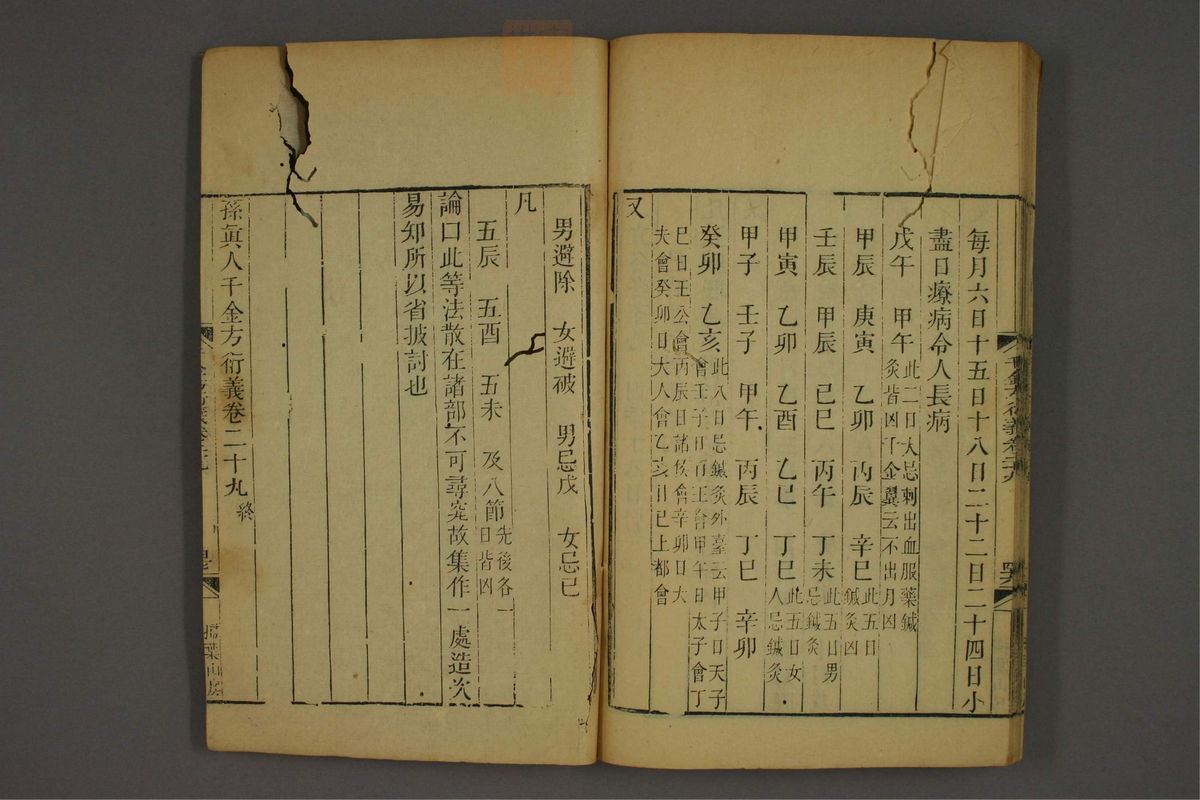 每月六日十五日十八日二十二日二十四日小
盡日療病令人長病
戊午　甲午此二日大忌刺出血服藥鍼
灸皆凶千金翼云不出月凶
甲辰　庚寅　乙卯　丙辰　辛巳此五日
鍼灸凶
壬辰　甲辰　己巳　丙午　丁未此五日男
忌鍼灸
甲寅　乙卯　乙酉　乙巳　丁巳此五日女
人忌鍼灸
甲子　壬子　甲午　丙辰　丁巳　辛卯
癸卯　乙亥此八日忌鍼灸外臺云甲子日天子
會壬子日百王會甲午日太子會丁
巳日王公會丙辰日諸侯會辛卯日大
夫會癸卯日大人會乙亥日已上都會
又
男避除　女避破　男忌戊　女忌己
凡
五辰　五酉　五未　及八節先後各一
日皆凶
論曰此等法散在諸部不可尋究故集作一處造次
易知所以省披討也
孫真人千金方衍義卷二十九終
千金方衍義卷二十九
掃葉山房